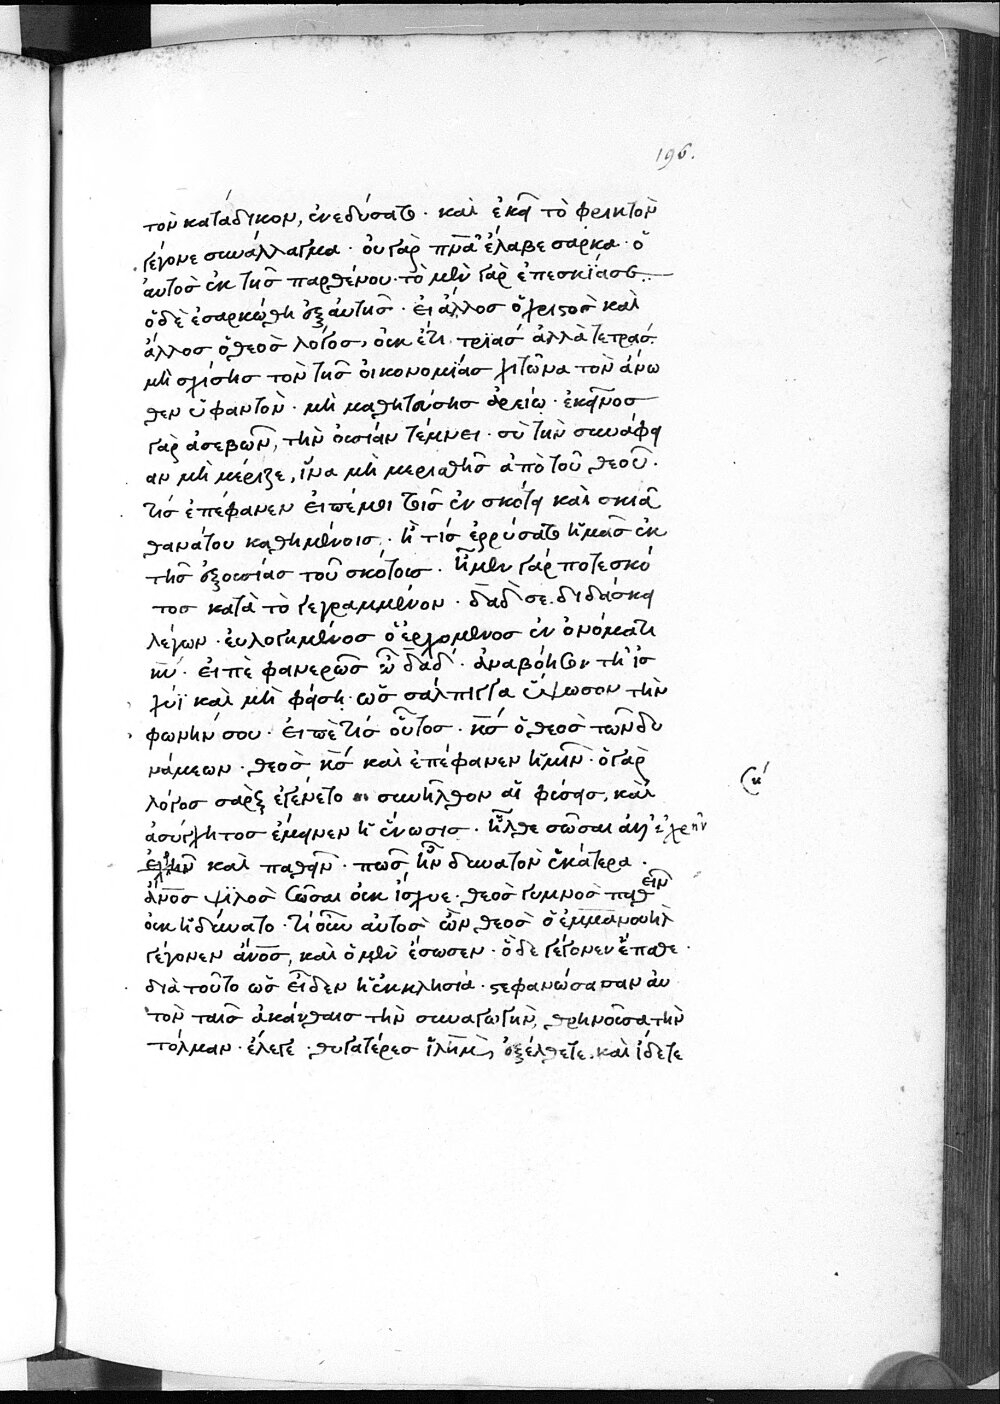 196.
τὸν κατάδικον, ἐνεδύσατο · καὶ ἐκεῖ τὸ φρικτὸν
γέγονε συνάλλαγμα · οὐ γὰρ π̅ν̅α̅ ἔλαβε σάρκα · ὁ
αὐτὸς ἐκ τῆς παρθένου · τὸ μὲν γὰρ ἐπεσκίασε
ὁ δὲ ἐσαρκώθη ἐξ αὐτῆς · εἰ ἄλλος ὁ χριστὸς καὶ
ἄλλος ὁ θεὸς λόγος, οὐκ ἔτι τριὰς ἀλλὰ τετράς.
μὴ σχίσῃς τὸν τῆς οἰκονομίας χιτῶνα τὸν ἄνω
θεν ὑφαντὸν · μὴ μαθητεύσῃς ἀρείω · ἐκεῖνος
γὰρ ἀσεβῶν, τὴν οὐσίαν τέμνει · σὺ τὴν συνάφει
αν μὴ μέριζε, ἵνα μὴ μερισθῇς ἀπὸ τοῦ θεοῦ ·
τίς ἐπέφανεν εἰπέ μοι τοῖς ἐν σκότει καὶ σκιᾶ
θανάτου καθημένοις · ἢ τίς ἐρρύσατο ἡμᾶς ἐκ
τῆς ἐξουσίας τοῦ σκότους · ἦμεν γάρ ποτε σκό
τος κατὰ τὸ γεγραμμένον · δα̅δ̅ σε διδάσκει
λέγων · εὐλογημένος ὁ ἐρχόμενος ἐν ὀνόματι
κ̅υ̅ · εἰπὲ φανερῶς ὦ δα̅δ̅ · ἀναβόησον τῇ ἰσ
χύϊ καὶ μὴ φείσῃ · ὡς σάλπιγγα ὕψωσον τὴν
φωνήν σου · εἰπὲ τίς οὗτος · κ̅ς̅ ὁ θεὸς τῶν δυ
νάμεων · θεὸς κ̅ς̅ καὶ ἐπέφανεν ἡμῖν · ὁ γὰρ
λόγος σὰρξ ἐγένετο συνῆλθον αἱ φύσεις, καὶ
ἀσύγχητος ἔμεινεν ἡ ἕνωσις · ἦλθε σῶσαι ἀλλ' ἐχρῆν
καὶ παθεῖν · πῶς ἦν δυνατὸν ἑκάτερα ·
ἄν̅ο̅ς ψιλὸς σῶσαι οὐκ ἴσχυε · θεὸς γυμνὸς παθεῖν
οὐκ ἠδύνατο · τί οὖν αὐτὸς ὢν θεὸς ὁ ἐμμανουὴλ
γέγονεν ἄν̅ο̅ς, καὶ ὃ μὲν ἔσωσεν · ὃ δὲ γέγονεν ἔπαθε ·
διὰ τοῦτο ὡς εἶδεν ἡ ἐκκλησία · στεφανώσασαν αὐ
τὸν ταῖς ἀκάνθαις τὴν συναγωγὴν, θρηνοῦσα τὴν
τόλμαν · ἔλεγε · θυγατέρες ἱλ̅η̅μ̅, ἐξέλθετε καὶ ἴδετε